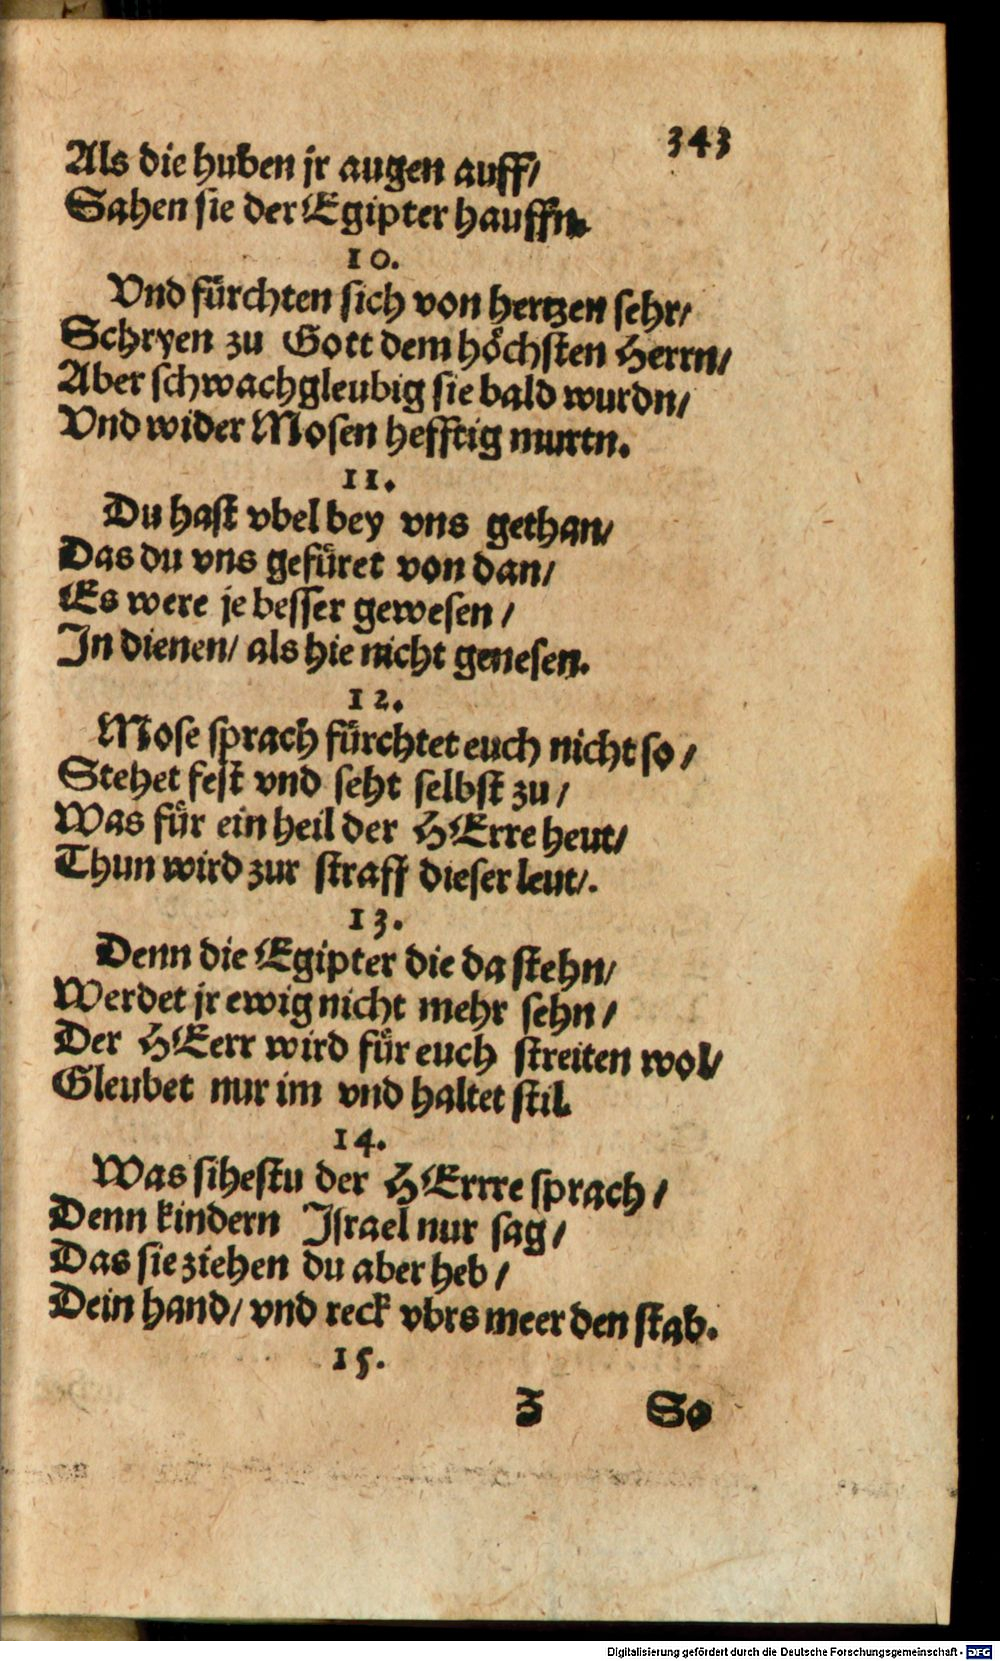 343
Als die huben jr augen auff/
Sahen sie der Egipter hauffn.
10.
Vnd fürchten sich von hertzen sehr/
Schryen zu Gott dem höchsten Herrn/
Aber schwachgleubig sie bald wurdn/
Vnd wider Mosen hefftig murtn.
11.
Du hast vbel bey vns gethan/
Das du vns gefüret von dan/
Es were je besser gewesen/
In dienen/ als hie nicht genesen.
12.
Mose sprach fürchtet euch nicht so/
Stehet fest vnd seht selbst zu/
Was für ein heil der HErre heut/
Thun wird zur straff dieser leut/.
13.
Denn die Egipter die da stehn/
Werdet jr ewig nicht mehr sehn/
Der HEerr wird für euch streiten wol/
Gleubet nur im vnd haltet stil.
14.
Was sihestu der HErrre sprach/
Denn kindern Israel nur sag/
Das sie ziehen du aber heb/
Dein hand/ vnd reck vbrs meer den stab.
15.
Z So
Digitalisierung gefördert durch die Deutsche Forschungsgemeinschaft - DFG